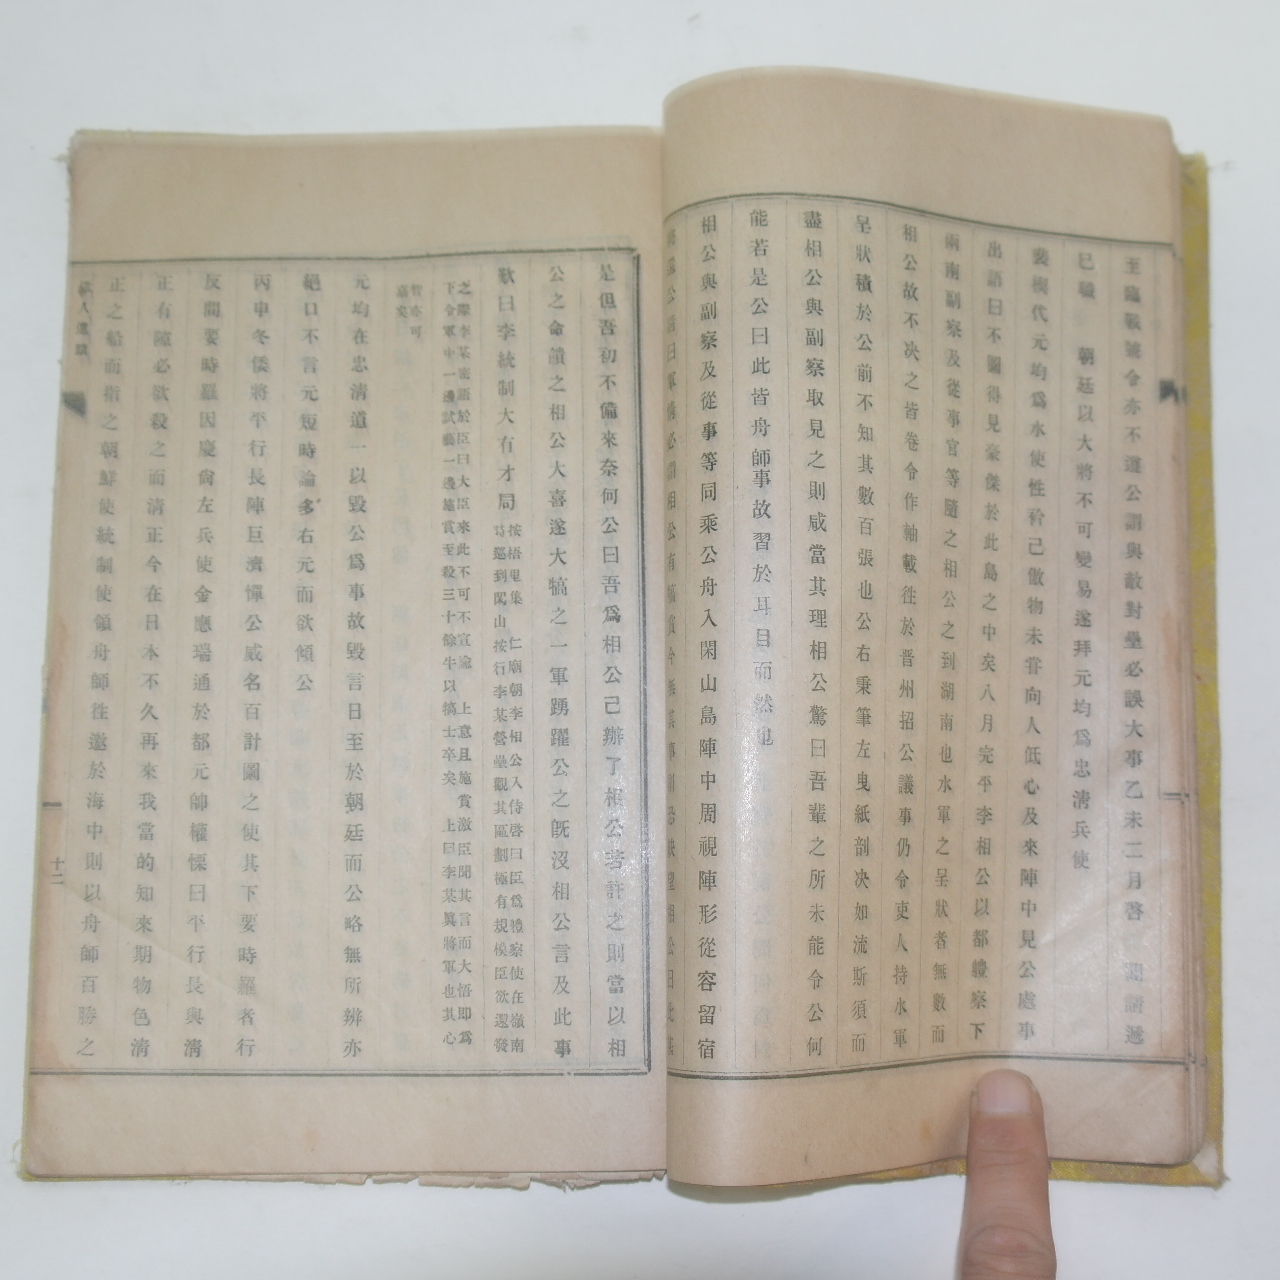 至臨戰號令亦不遵公謂與敵對壘必誤大事乙未二月啓 開請遞
已職 朝廷以大將不可變易遂拜元均爲忠淸兵使
裴楔代元均爲水使性矜己傲物未甞向人低心及來陣中見公處事
出語曰不圖得見豪傑於此島之中矣八月完平李相公以都體察下
兩南副察及從事官等隨之相公之到湖南也水軍之呈狀者無數而
相公故不决之皆卷令作軸載徃於晋州招公議事仍令吏人持水軍
呈狀積於公前不知其數百張也公右秉筆左曳紙剖决如流斯須而
盡相公與副察取見之則咸當其理相公驚曰吾輩之所未能令公何
能若是公曰此皆舟師事故習於耳目而然也
相公與副察及從事等同乘公舟入閑山島陣中周視陣形從容留宿
是但吾初不備來奈何公曰吾爲相公已辦了相公若許之則當以相
公之命饋之相公大喜遂大犒之一軍踴躍公之旣沒相公言及此事
歎曰李統制大有才局
按梧里集 仁廟朝李相公入侍啓曰臣爲體察使在嶺南
巡到閑山按行李某營壘觀其區劃極有規模臣欲還發
之際李某密語於臣曰大臣來此不可不宣諭 上意且施賞激臣聞其言而大悟即爲
下令軍中一邊試藝一邊施賞至殺三十餘牛以犒士卒矣 上曰李某眞將軍也其心
智亦可
嘉矣
元均在忠淸道一以毀公爲事故毀言日至於朝廷而公略無所辨亦
絕口不言元短時論多右元而欲傾公
丙申冬倭將平行長陣巨濟憚公威名百計圖之使其下要時羅者行
反間要時羅因慶尙左兵使金應瑞通於都元帥權慄曰平行長與淸
正有隙必欲殺之而淸正今在日本不久再來我當的知來期物色淸
正之船而指之朝鮮使統制使領舟師徃邀於海中則以舟師百勝之
十二